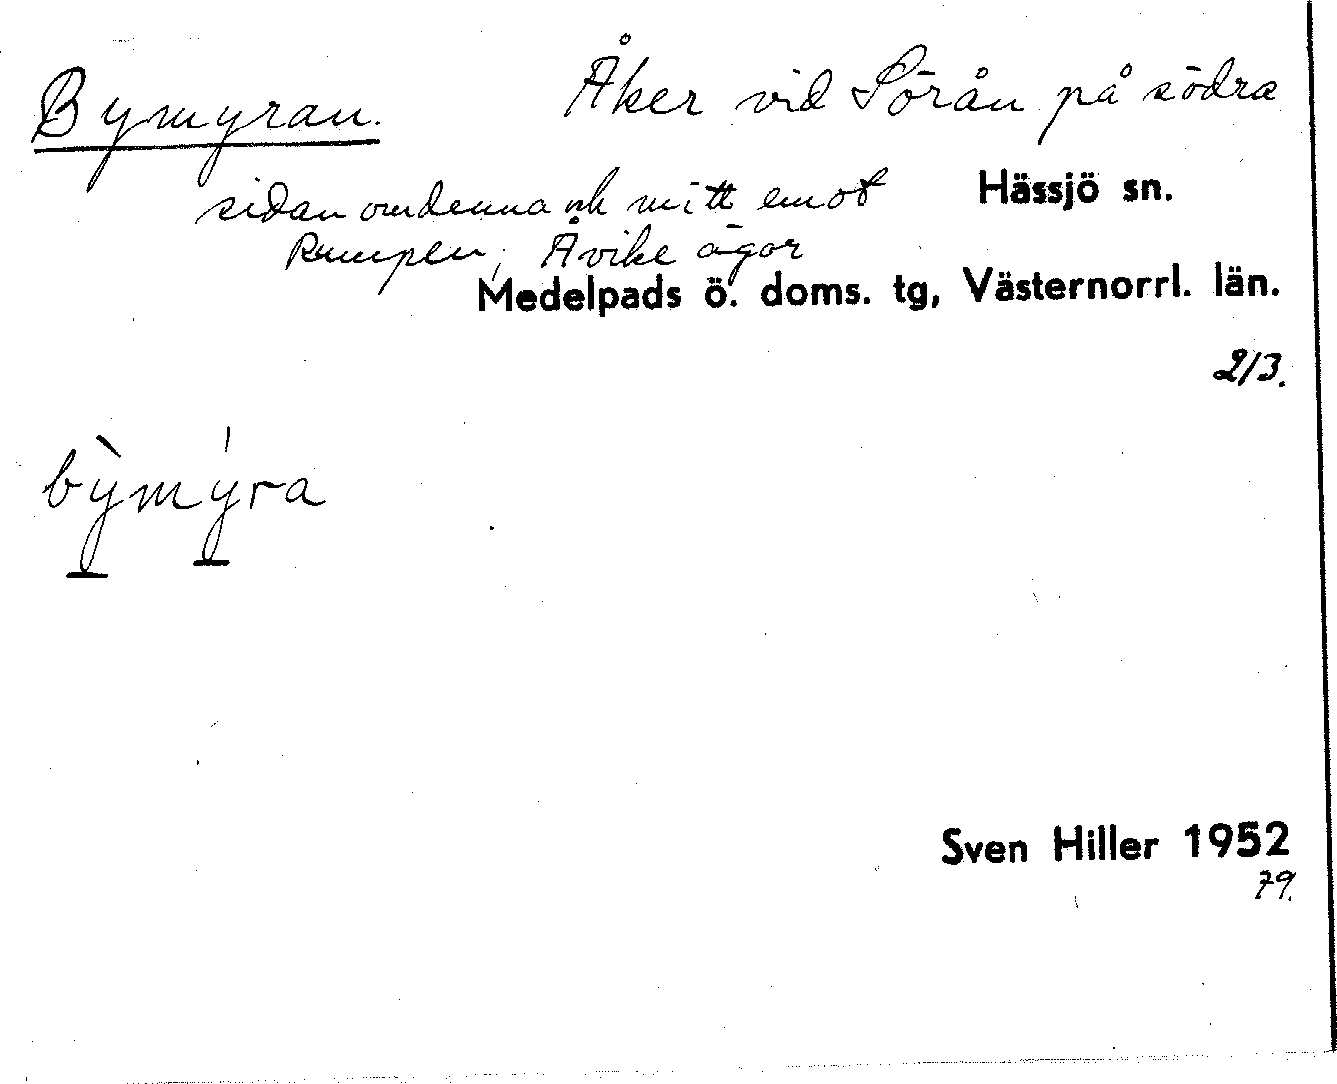 Bymyran. Åker vid Sörån på södra
sidan om denna och mitt emot Hässjö sn.
Rumpen; Åvike ägor
Medelpads ö. doms. tg, Västernorrl. län.
2/3.
bỳmýra
Sven Hiller 1952
79.